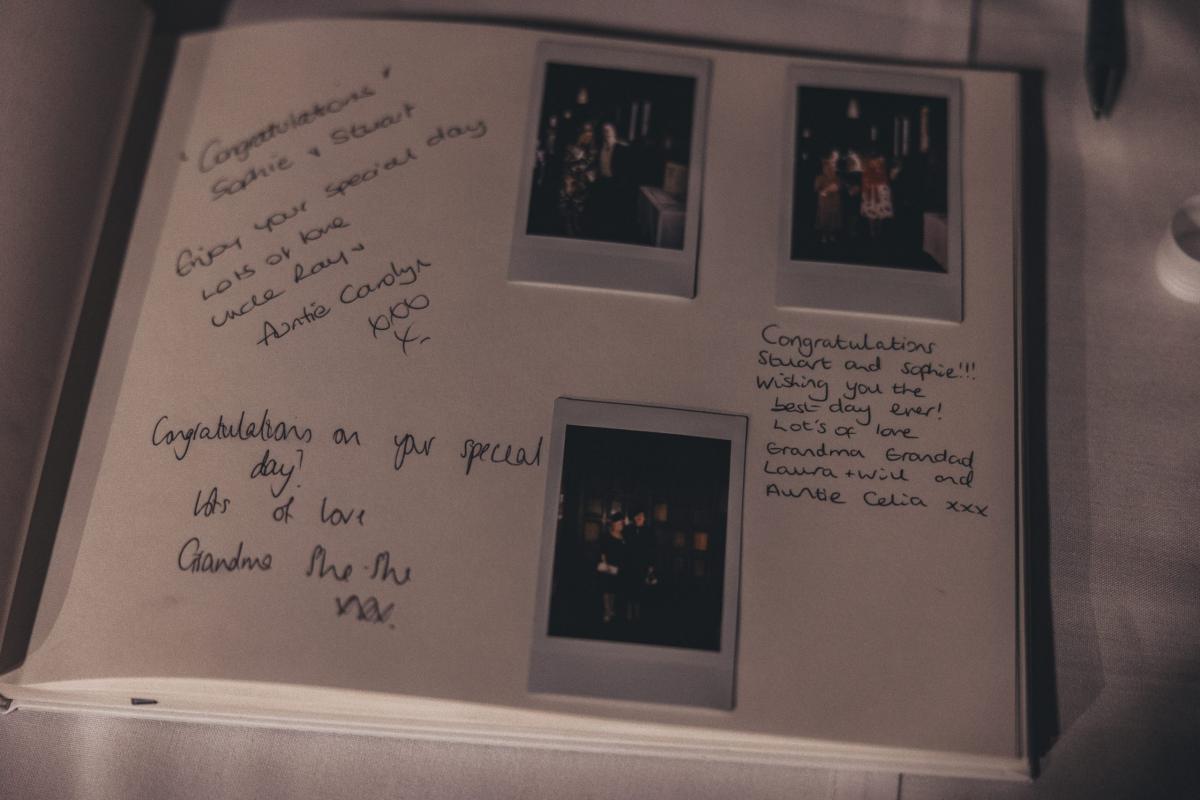 "Congratulations"
Sophie & Stuart
Enjoy your special day
Lots of love
Uncle Ray &
Auntie Carolyn
xxx
x
Congratulations on your special
day!
lots of love
Grandma She-She
xxx.
Congratulations
Stuart and Sophie!!!
Wishing you the
best day ever!
Lot's of love
Grandma Grandad
Laura + Will and
Auntie Celia xxx